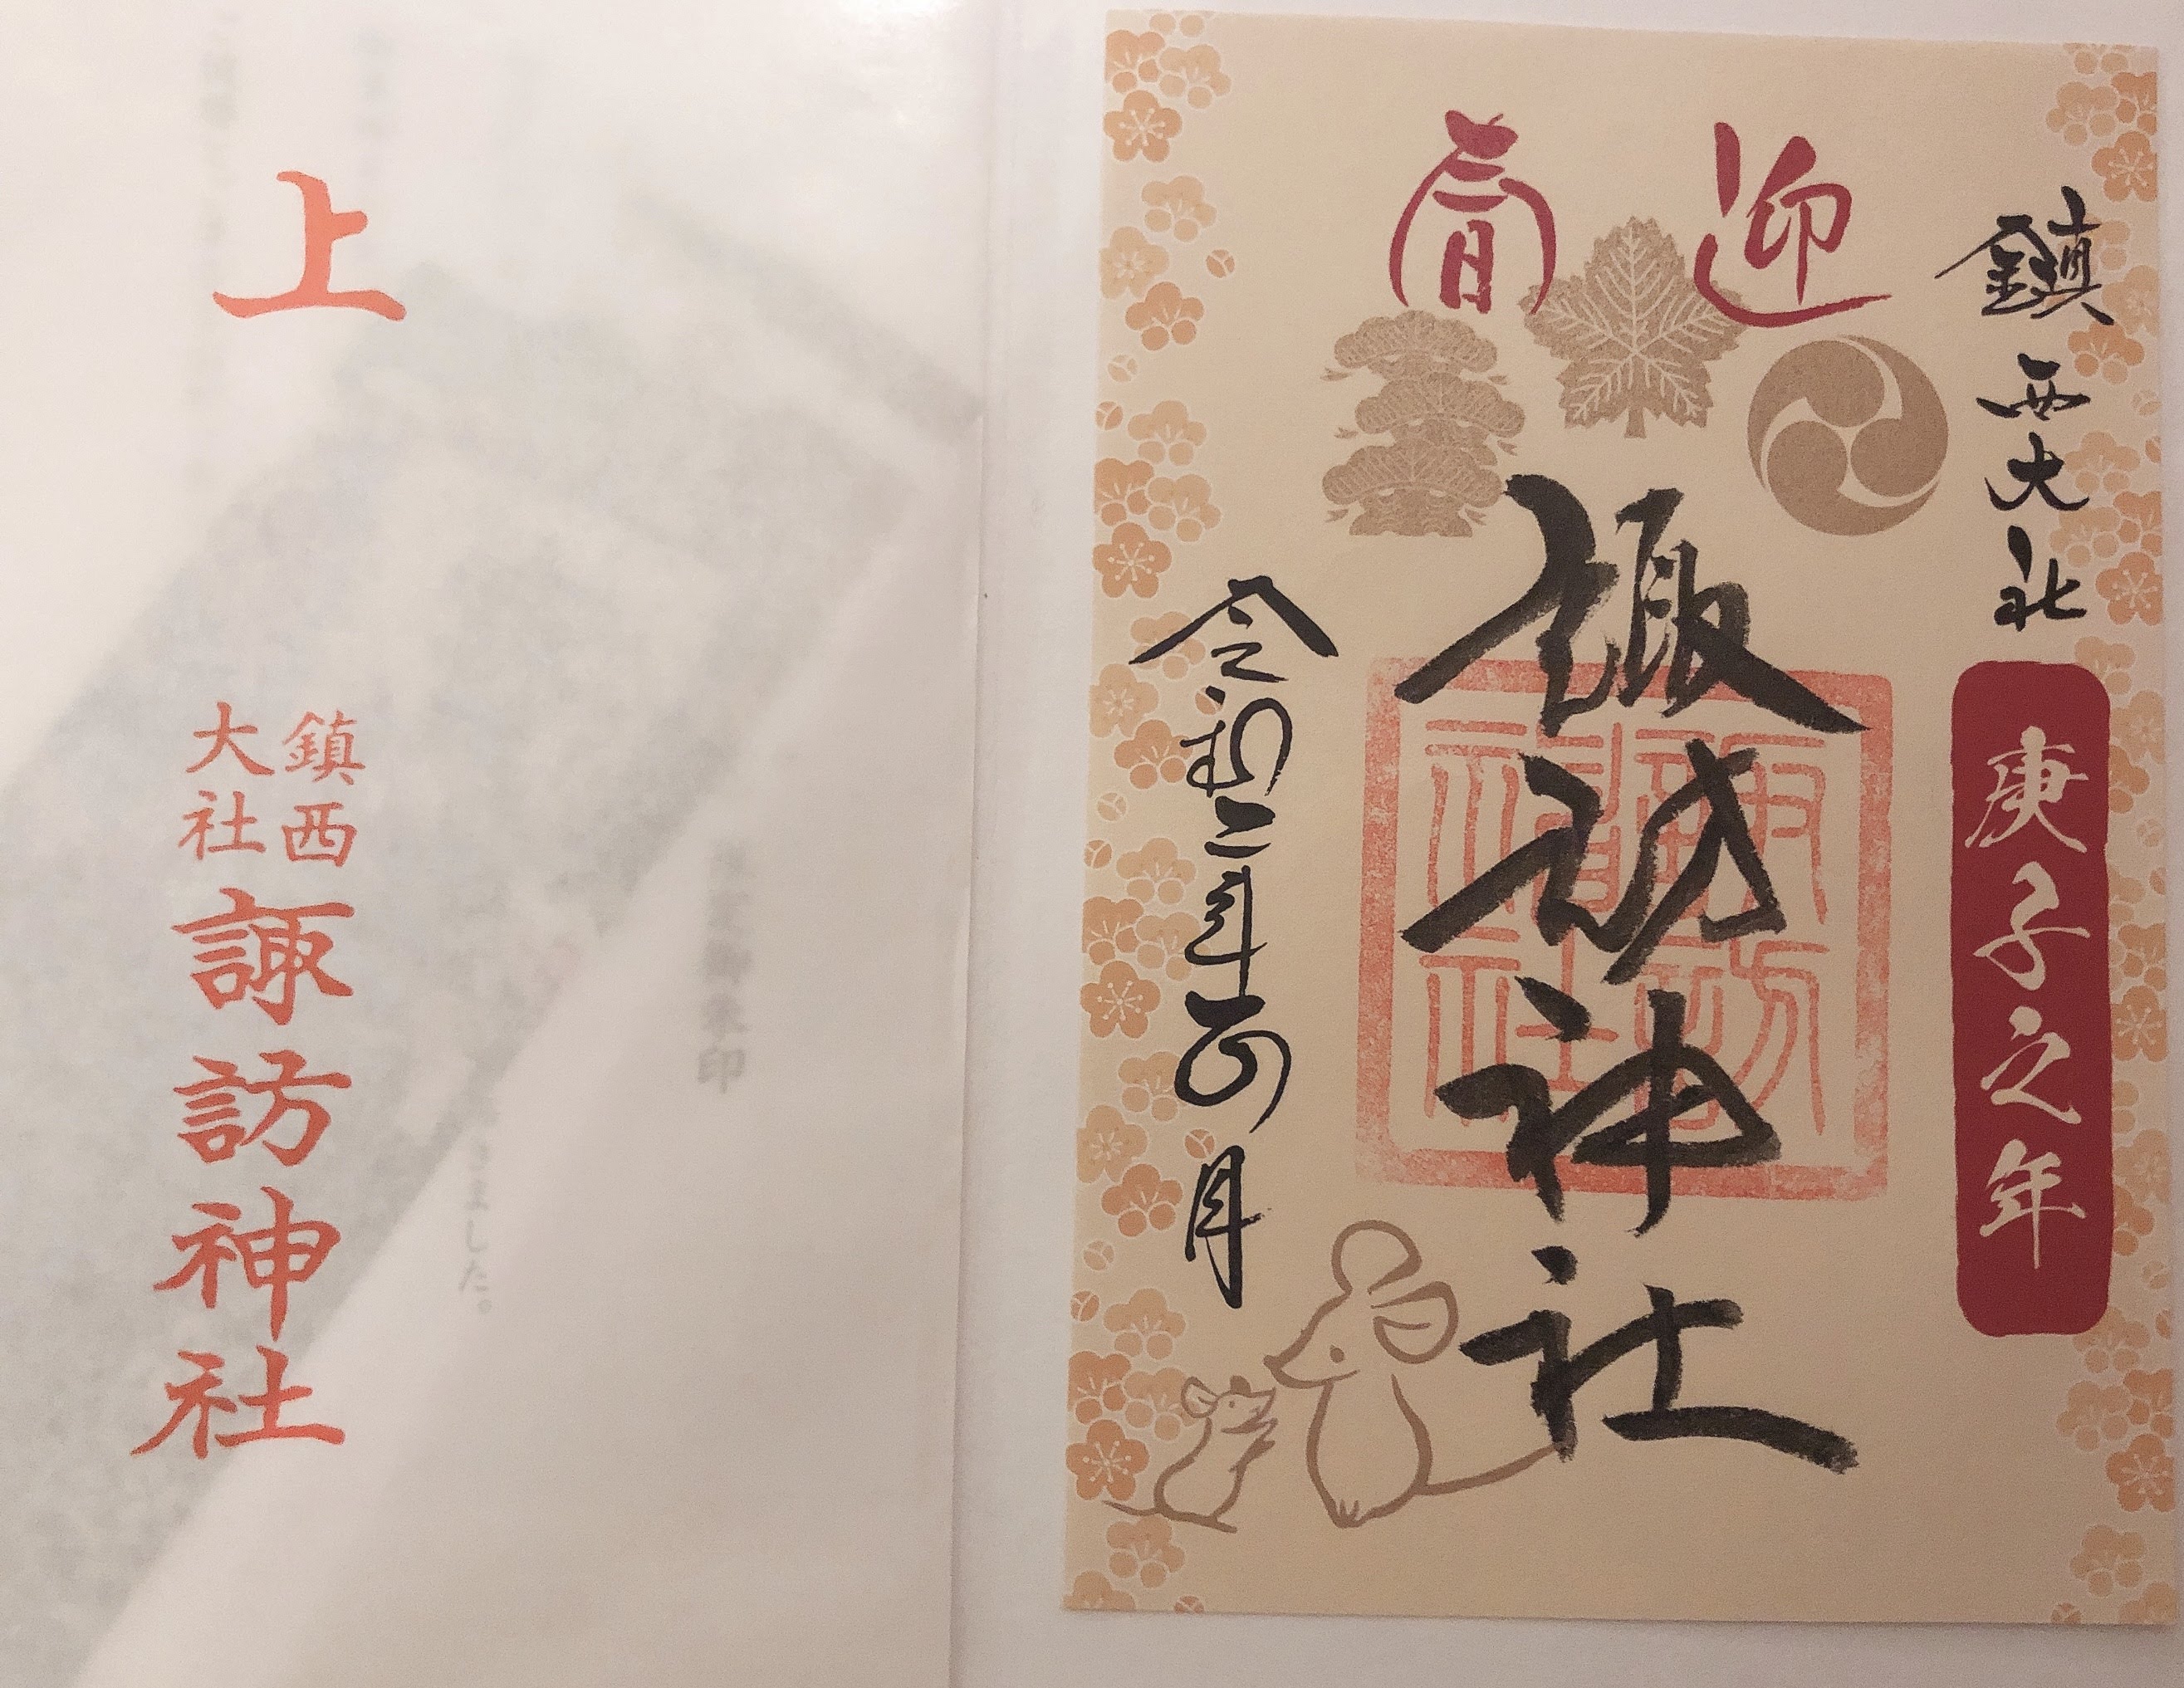 迎春
鎮西大社
庚子之年
諏訪神社
諏訪神社
令和二年正月
上
鎮西
大社
諏訪神社
朱印
ました。